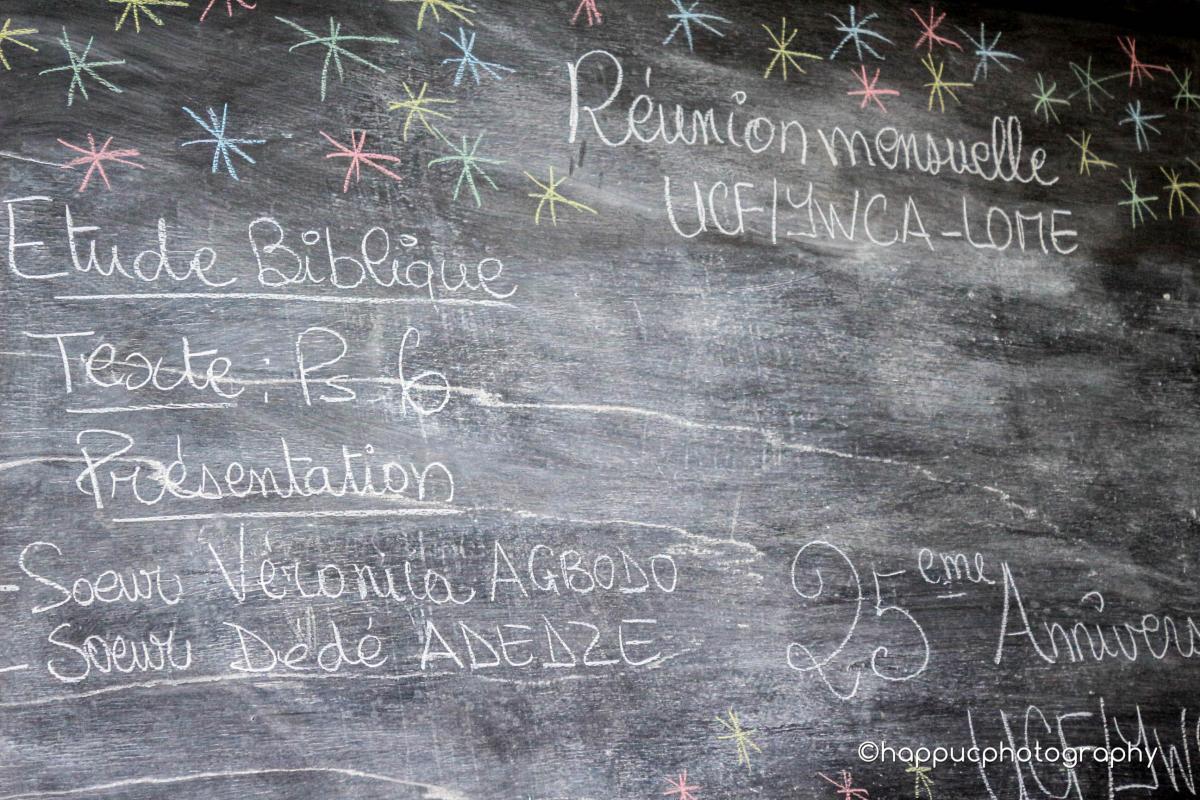 Réunion mensuelle
UCF/YWCA-LOME
Etude Biblique
Texte : Ps 6
Présentation
-Soeur Véronica AGBODO
- Soeur Dédé ADEDZE
25eme Annivers
UCF/YW
©happucphotography